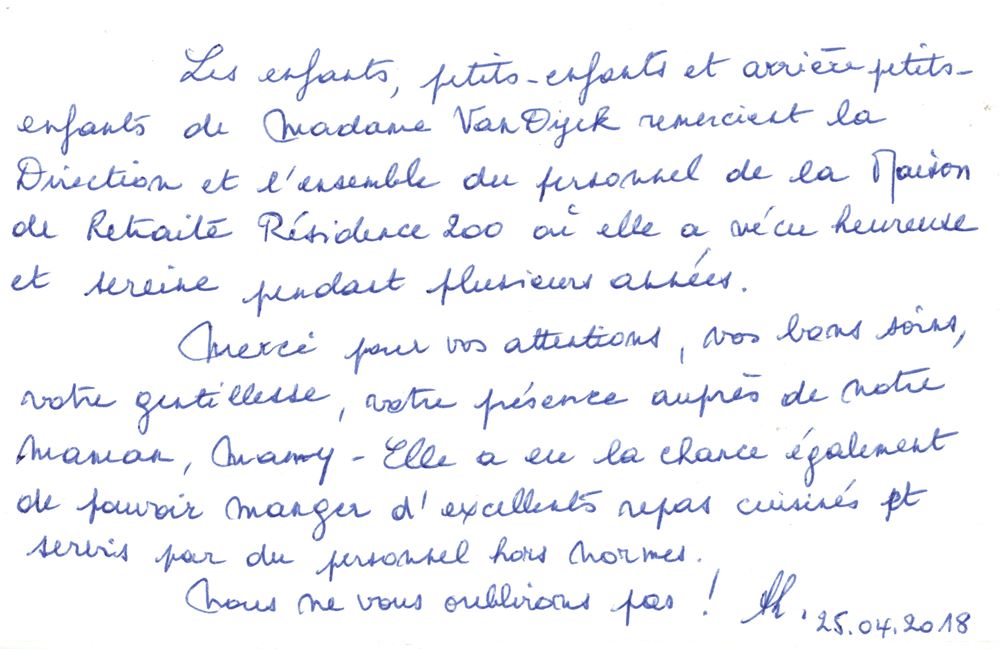 Les enfants, petits-enfants et arrière petits-
enfants de Madame VanDyck remercient la
Direction et l'ensemble du personnel de la Maison
de Retraite Résidence 200 où elle a vécu heureuse
et sereine pendant plusieurs années.
Merci pour vos attentions, vos bons soins,
votre gentillesse, votre présence auprès de notre
Maman, Mamy - Elle a eu la chance également
de pouvoir manger d'excellents repas cuisinés et
servis par du personnel hors normes.
Nous ne vous oublirons pas !
25.04.2018